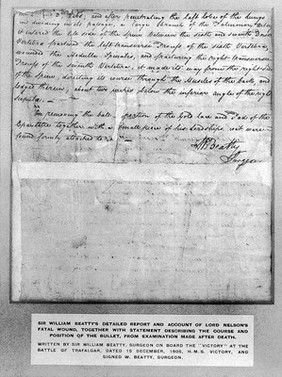 Ribs, and after penetrating the left lobe of the lungs
and dividing in its passage, a large branch of the Pulmonary Artery
it entered the left side of the Spine between the sixth and seventh Dorsal
Vertebra, fractured the left transverse Process of the sixth Vertebra,
wounded the Medulla Spinalis, and fracturing the right transverse
Process of the seventh Vertebra, it made its way from the right side
of the Spine, directing its course through the Muscles of the back, and
lodged therein, about two inches below the inferior angle of the right
Scapula. —
On removing the ball a portion of the Gold lace and Pad of the
Epaulette together with a small piece of his Lordships coat were
found firmly attached to it —
W Beatty
Surgeon
SIR WILLIAM BEATTY'S DETAILED REPORT AND ACCOUNT OF LORD NELSON'S
FATAL WOUND, TOGETHER WITH STATEMENT DESCRIBING THE COURSE AND
POSITION OF THE BULLET, FROM EXAMINATION MADE AFTER DEATH.
WRITTEN BY SIR WILLIAM BEATTY, SURGEON ON BOARD THE "VICTORY" AT THE
BATTLE OF TRAFALGAR, DATED 15 DECEMBER, 1805, H.M.S. VICTORY, AND
SIGNED W. BEATTY, SURGEON.